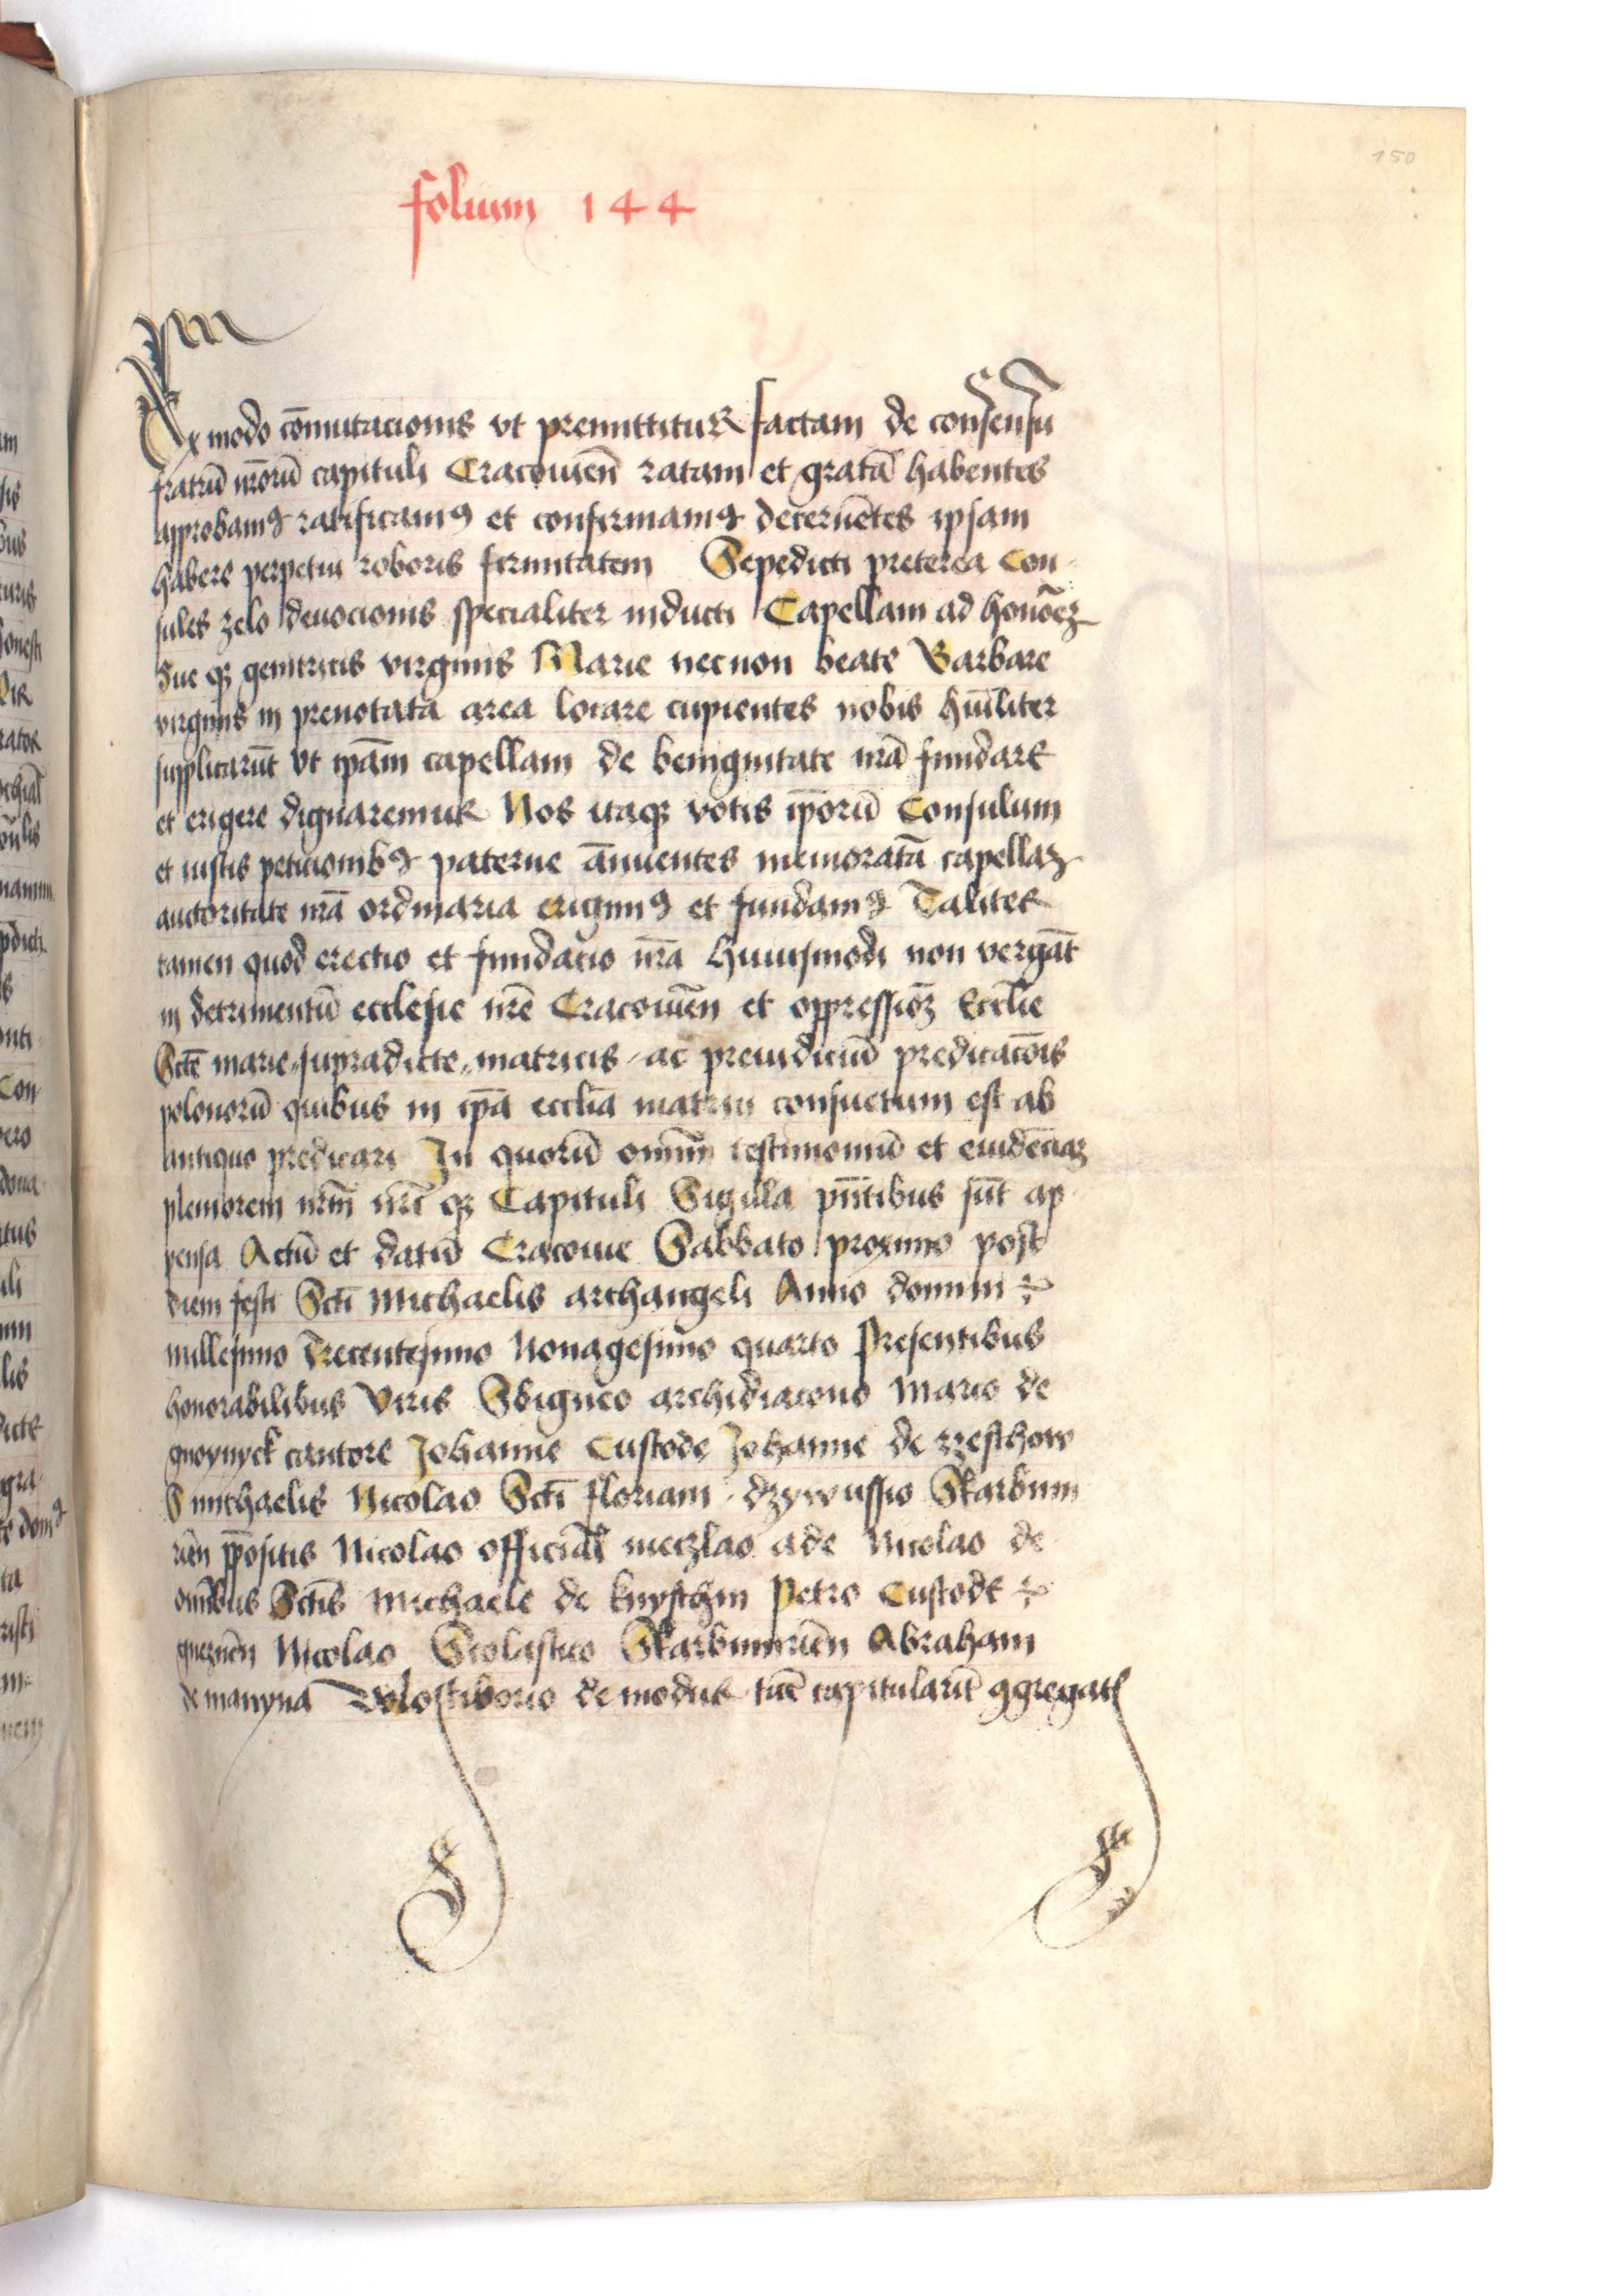 150
folium 144
Ex modo cōmutacionis vt premittitur factam de consensu
fratrū nr̄orū capituli Cracouien̄ ratam et gratā habentes
approbamꝰ ratificamꝰ et confirmamꝰ decernētes ipsam
habere perpetui roboris firmitatem Sepedicti preterea Con
sules zelo deuocionis specialiter inducti Capellam ad honōeꝫ
genitricis virginis Marie necnon beate Barbare
virginis in prenotata area locare cupientes nobis hūiliter
supplicarūt vt ip̄am capellam de benignitate nr̄a fundare
et erigere dignaremur Nos itaqꝫ votis ip̄orū Consulum
et iustis peticionibꝰ paterne ānuentes memoratā capellaꝫ
auctoritate nr̄a ordinaria erigimꝰ et fundamꝰ Taliter
tamen quod erectio et fundacio nr̄a huiusmodi non vergāt
in detrimentū ecclesie nr̄e Cracouien̄ et oppressiōꝫ Eccl̄ie
Sctē marie supradicte matricis ac preiudiciū predicacōis
polonorū quibus in ip̄a eccl̄ia matrici consuetum est ab
antiquo predicari In quorū omniū testimoniū et euidēciaꝫ
pleniorem nr̄m nr̄i qꝫ Capituli Sigilla pn̄tibus sūt ap
pensa Actū et datū Cracouie Sabbato proximo post
diem festi Scti Michaelis archangeli Anno domini
millesimo Trecentesimo Nonagesimo quarto Presentibus
honorabilibus viris Sbigneo archidiacono Marco de
gnoynyck cantore Johanne Custode Johanne de rzeschow
S michaelis Nicolao Scti floriani dzywissio Skarbimi
rien̄ pp̄ositis Nicolao officiali meczlao ade Nicolao de
om̄ibus Sctis Michaele de knyschin Petro Custode
gneznen̄ Nicolao Scolastico Skarbimirien̄ Abraham
de manyna Wlostiborio de modus tūc capitularit̄ ꝯgregatꝭ